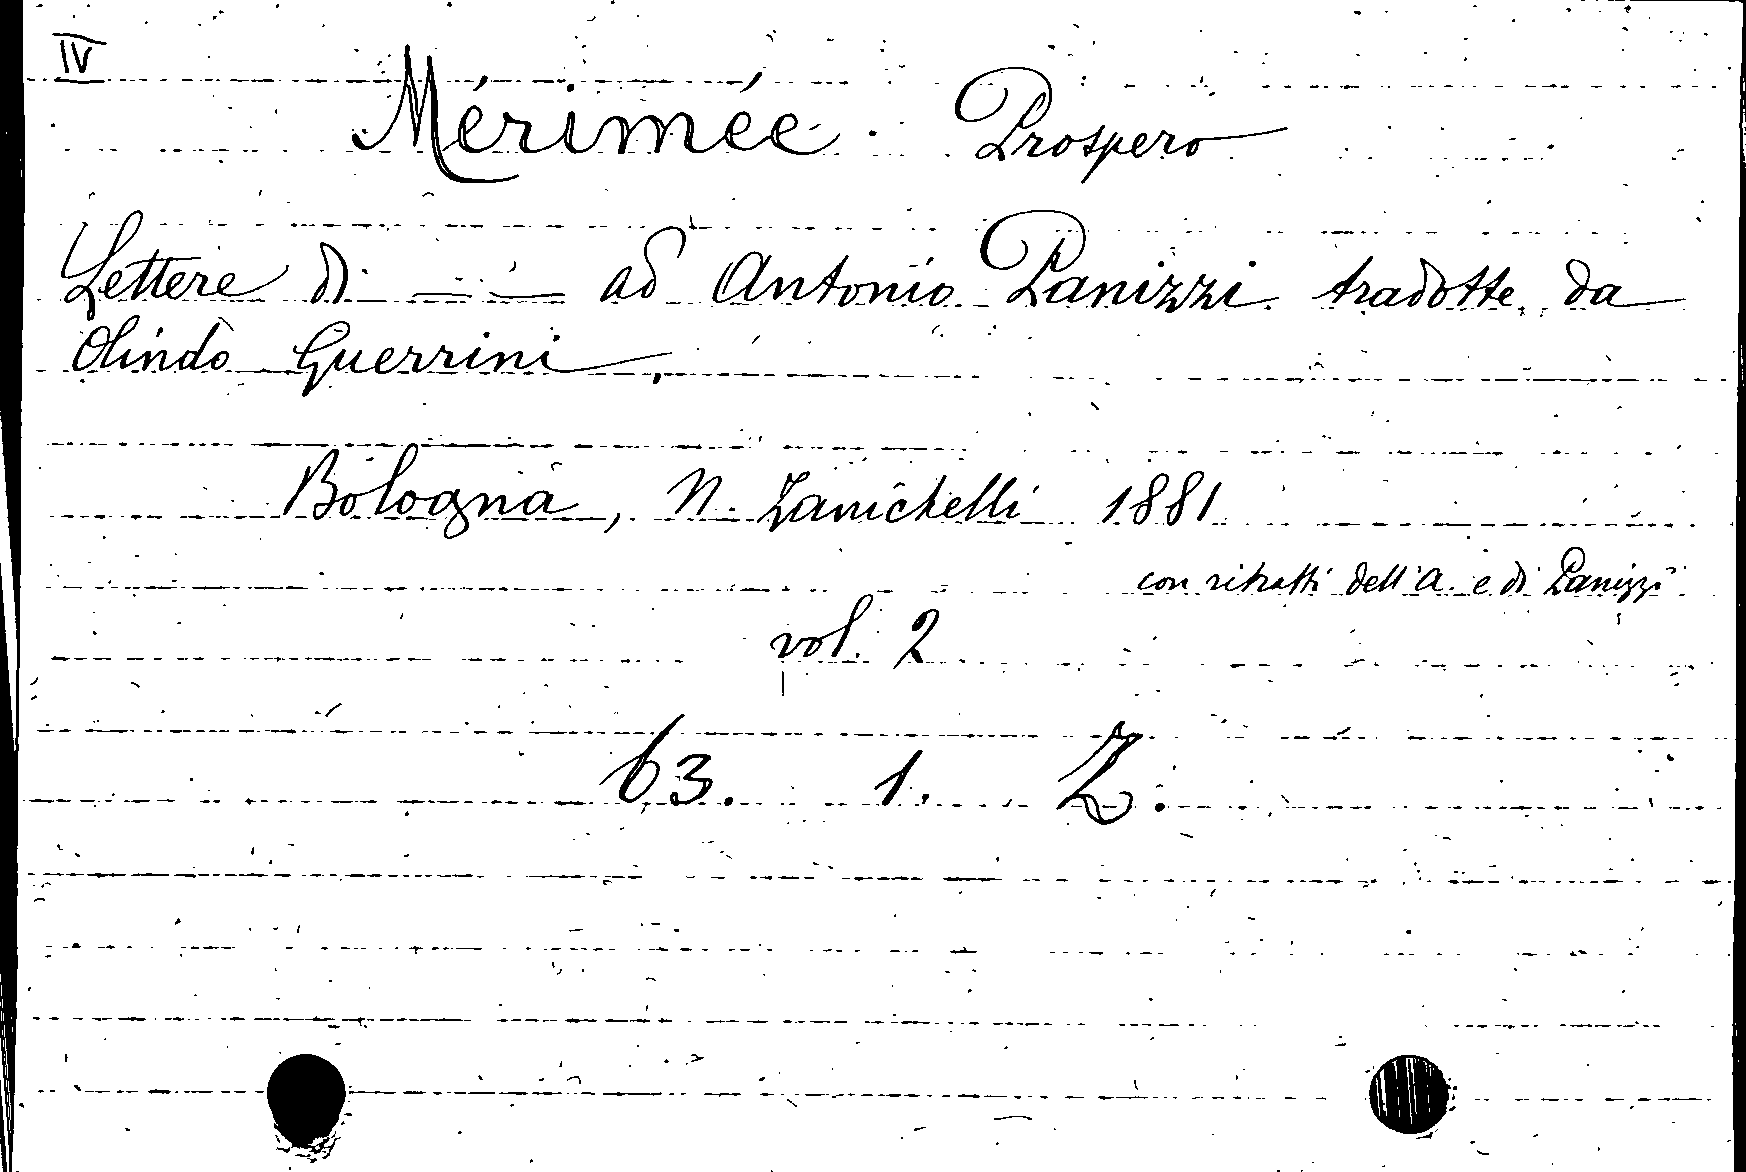 IV
Mérimée Prospero
Lettere di — — ad Antonio Panizzi tradotte da
Olindo Guerrini,
Bologna, N. Zanichelli 1881
con ritratti dell'A. e di Panizzi
vol. 2
63. 1. Z.